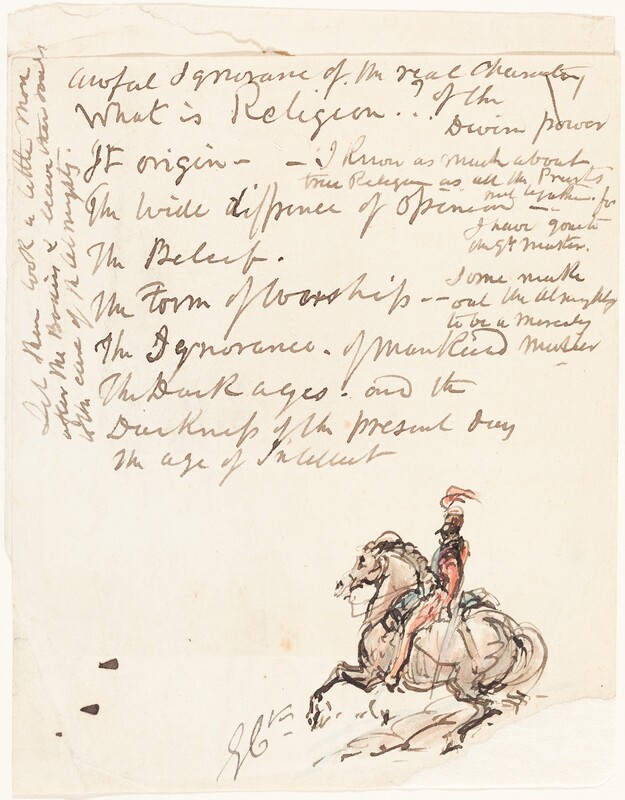 Awful Ignorance of the real Character
of the
Divine power
What is Religion..?
It origin - - I Know as much about
true Religion as all the Priests
put together for
I have gone to
the Gt Master.
The wide diffrence of Opinion -
The Belief.
The Form of Worship -- Some make
out the Almighty
to be a Merciless
Master
The Ignorance. of Mankind
The Dark ages. and the
Darkness of the present Day
The age of Intellect
Let them look a little more
after the Brains & leave the Souls
to the care of the Almighty.